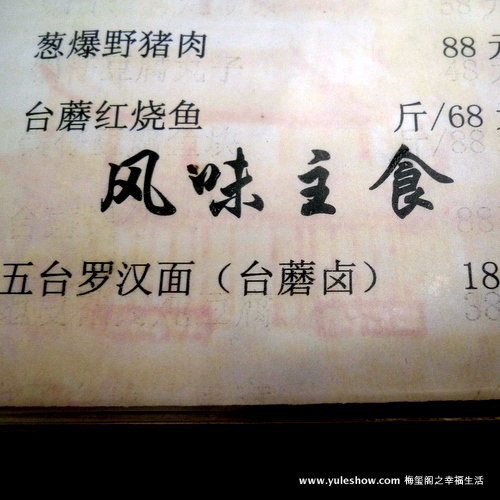 葱爆野猪肉 88元
台蘑红烧鱼 斤/68
风味主食
五台罗汉面（台蘑卤） 18
www.yuleshow.com 梅玺阁之幸福生活